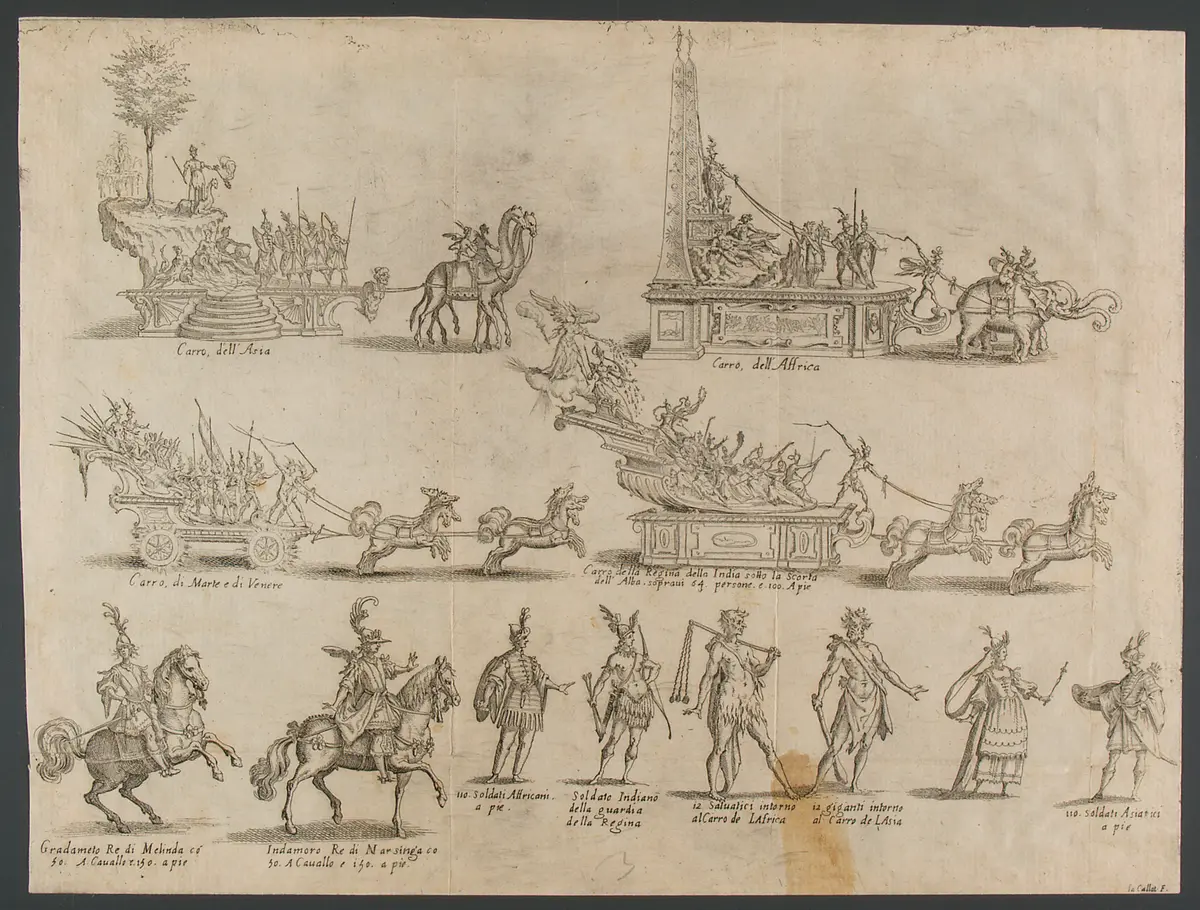 Carro, dell'Asia
Carro, dell'Affrica
Carro, di Marte e di Venere
Carro della Regina della India sotto la Scorta
dell'Alba. sopraui 64 persone. e. 100. A pie
Gradameto Re di Melinda cō
50. A Cauallo e. 150. a pie
Indamoro Re di Narsinga co
50. A Cauallo e 150. a pie.
110. Soldati Affricani.
a pie.
Soldato Indiano
della guardia
della Regina
12 Saluatici intorno
al Carro de L'Africa
12 giganti intorno
al Carro de L'Asia
110. Soldati Asiatici
a pie
Ia Callot F.